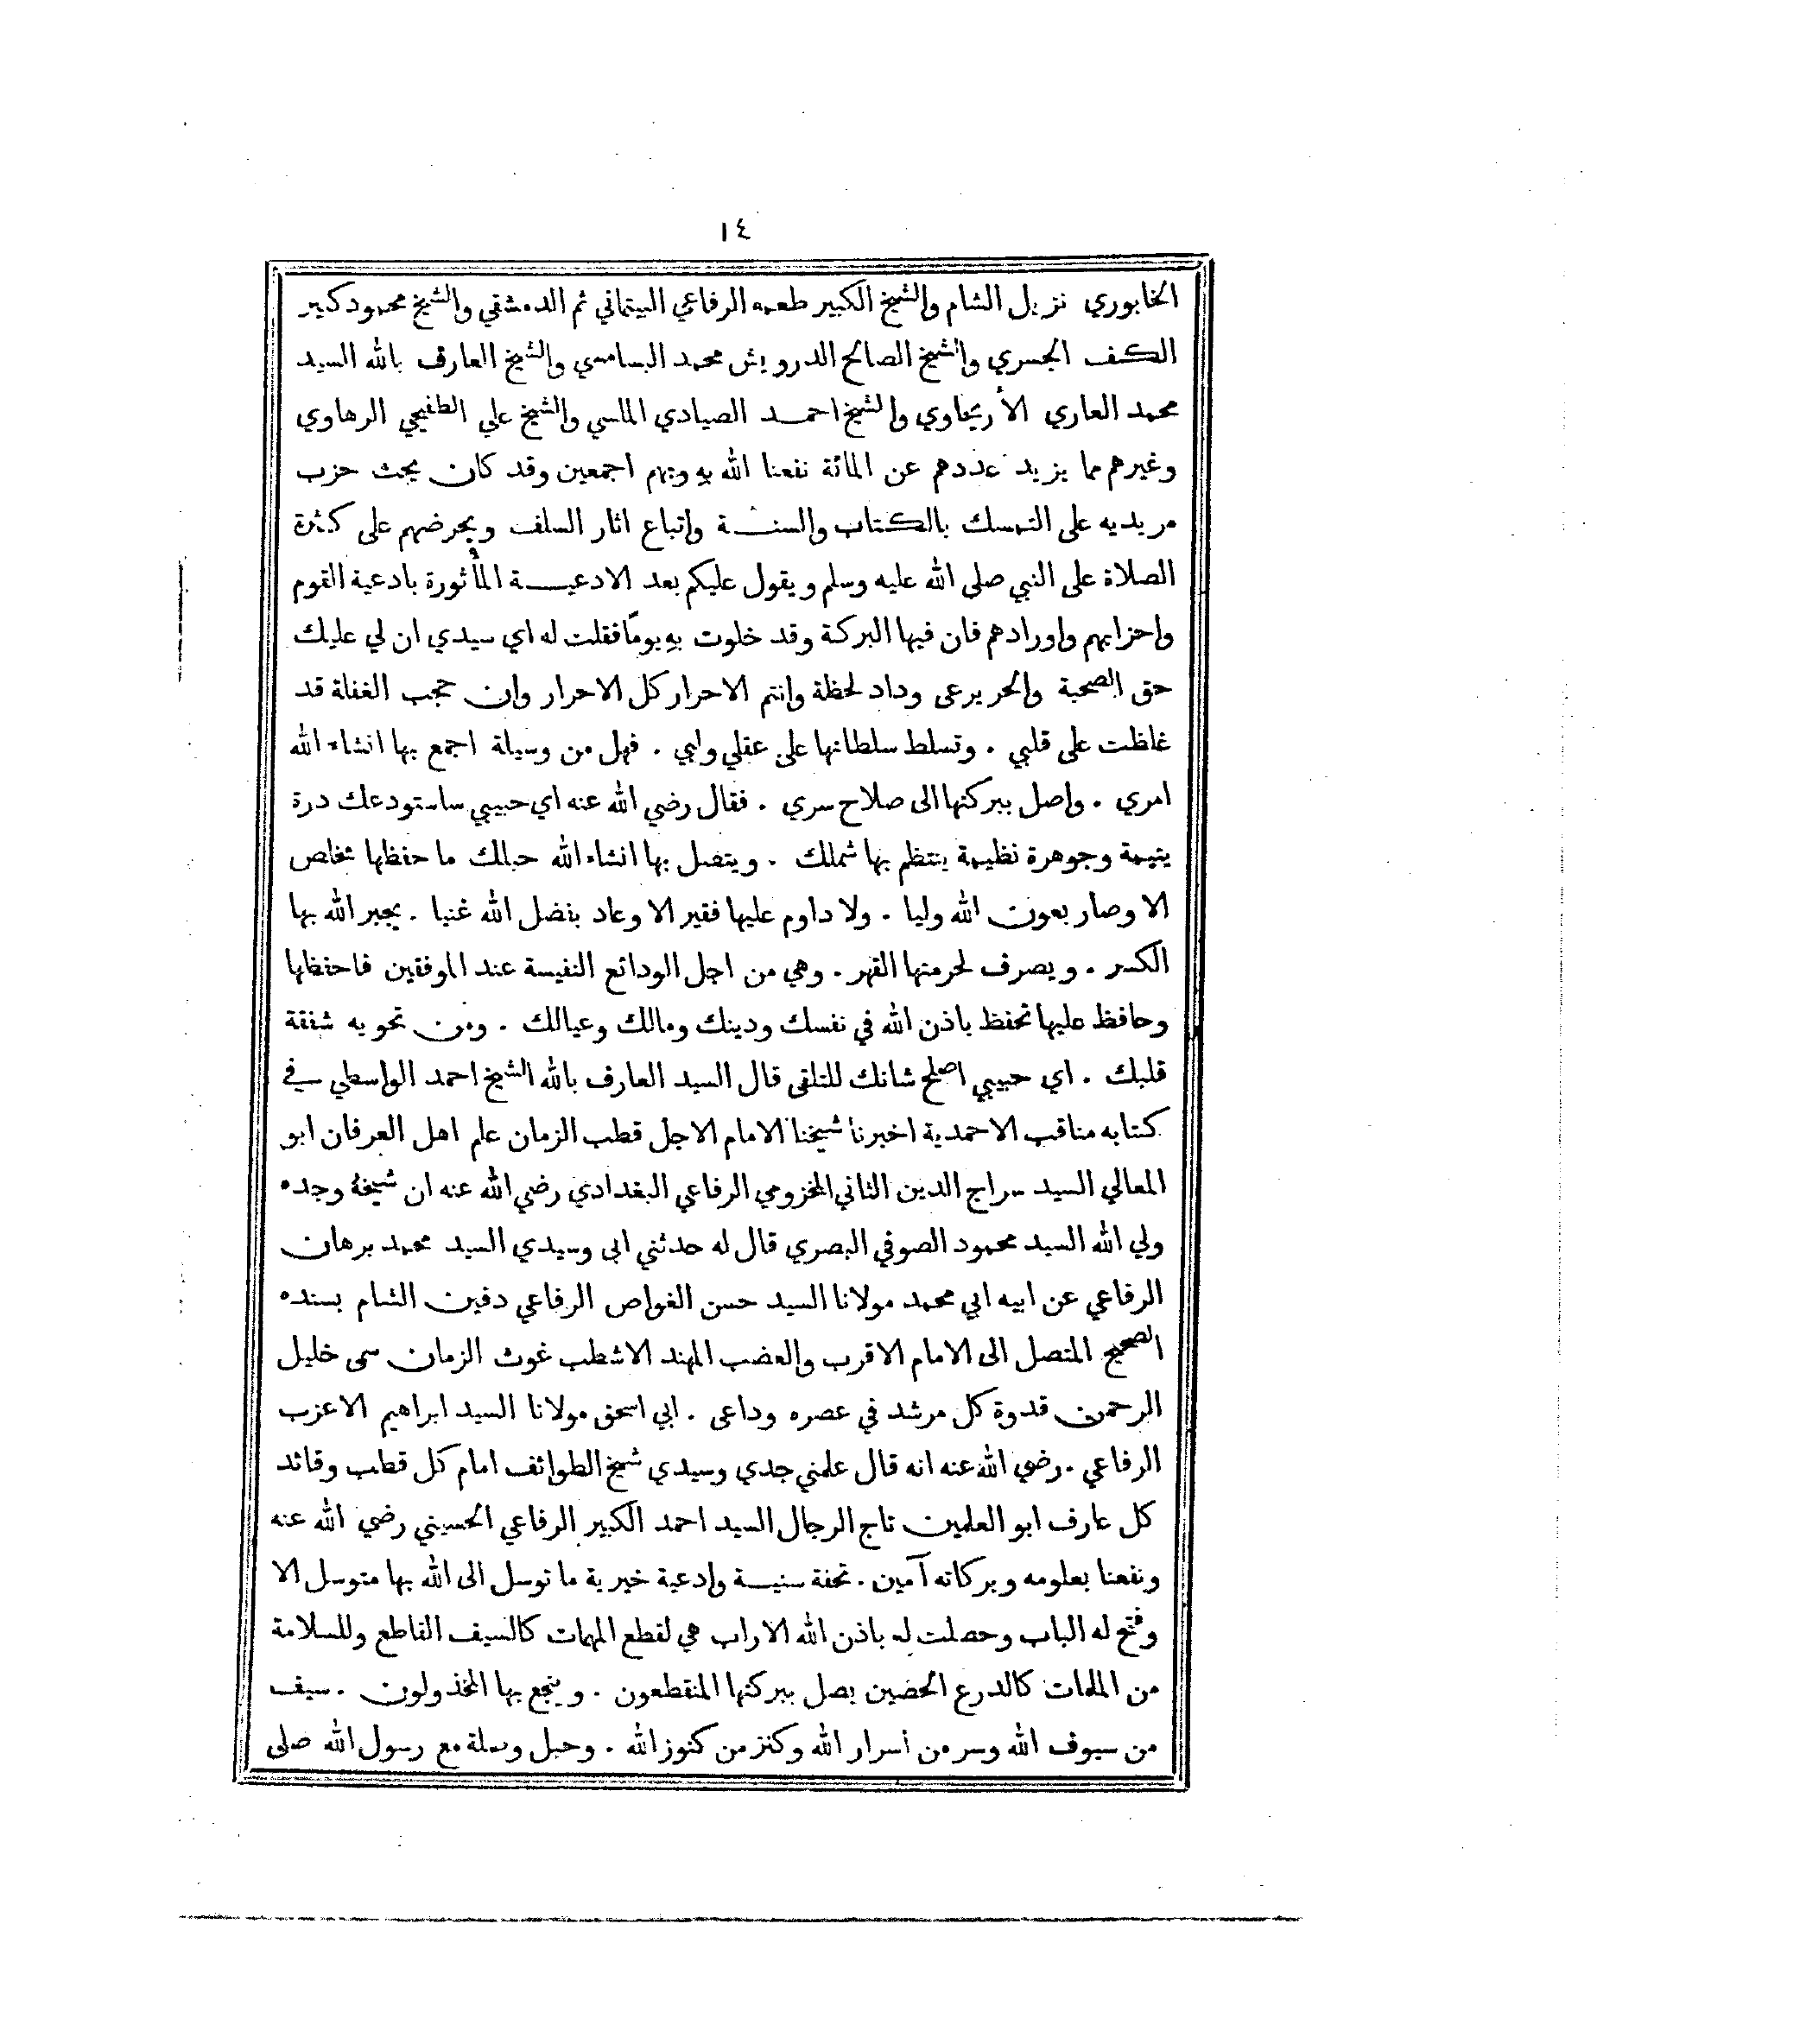 ١٤
الخابوري نزيل الشام والشيخ الكبير طعمه الرفاعي البيتماني ثم الدمشقي والشيخ محمود كبير
الكف الجسري والشيخ الصالح الدرويش محمد البسامسي والشيخ العارف بالله السيد
محمد العاري الأريحاوي والشيخ احمد الصيادي الماسي والشيخ علي الطفيحي الرهاوي
وغيرهم مما يزيد عددهم عن المائة نفعنا الله به وبهم اجمعين وقد كان يحث حزب
مريديه على التمسك بالكتاب والسنة واتباع اثار السلف ويحرضهم على كثرة
الصلاة على النبي صلى الله عليه وسلم ويقول عليكم بعد الادعية المأثورة بادعية القوم
واحزابهم واورادهم فان فيها البركة وقد خلوت به يومًا فقلت له اي سيدي ان لي عليك
حق الصحبة والحر يرعى وداد لحظة وانتم الاحرار كل الاحرار وان حجب الغفلة قد
غلظت على قلبي . وتسلط سلطانها على عقلي ولبي . فهل من وسيلة اجمع بها انشاء الله
امري . واصل ببركتها الى صلاح سري . فقال رضي الله عنه اي حبيبي ساستودعك درة
يتيمة وجوهرة نظيمة ينتظم بها شملك . ويتصل بها انشاء الله حبلك ما حفظها مخلص
الا وصار بعون الله وليا . ولا داوم عليها فقير الا وعاد بفضل الله غنيا . يجبر الله بها
الكسر . ويصرف لحرمتها القهر . وهي من اجل الودائع النفيسة عند الموفقين فاحفظها
وحافظ عليها تحفظ باذن الله في نفسك ودينك ومالك وعيالك . ومن تحويه شفقة
قلبك . اي حبيبي اصلح شانك للتلقى قال السيد العارف بالله الشيخ احمد الواسطي في
كتابه مناقب الاحمدية اخبرنا شيخنا الامام الاجل قطب الزمان علم اهل العرفان ابو
المعالي السيد سراج الدين الثاني المخزومي الرفاعي البغدادي رضي الله عنه ان شيخهُ وجده
ولي الله السيد محمود الصوفي البصري قال له حدثني ابى وسيدي السيد محمد برهان
الرفاعي عن ابيه ابي محمد مولانا السيد حسن الغواص الرفاعي دفين الشام بسنده
الصحيح المتصل الى الامام الاقرب والعضب المهند الاشطب غوث الزمان سمى خليل
الرحمن قدوة كل مرشد في عصره وداعى . ابي اسحق مولانا السيد ابراهيم الاعزب
الرفاعي . رضي الله عنه انه قال علمني جدي وسيدي شيخ الطوائف امام كل قطب وقائد
كل عارف ابو العلمين تاج الرجال السيد احمد الكبير الرفاعي الحسيني رضي الله عنه
ونفعنا بعلومه وبركاته آمين . تحفة سنية وادعية خيرية ما توسل الى الله بها متوسل الا
وفتح له الباب وحصلت له باذن الله الاراب هي لقطع المهمات كالسيف القاطع وللسلامة
من الملمات كالدرع الحصين يصل ببركتها المنقطعون . وينجع بها المخذولون . سيف
من سيوف الله وسر من أسرار الله وكنز من كنوز الله . وحبل وصلة مع رسول الله صلى